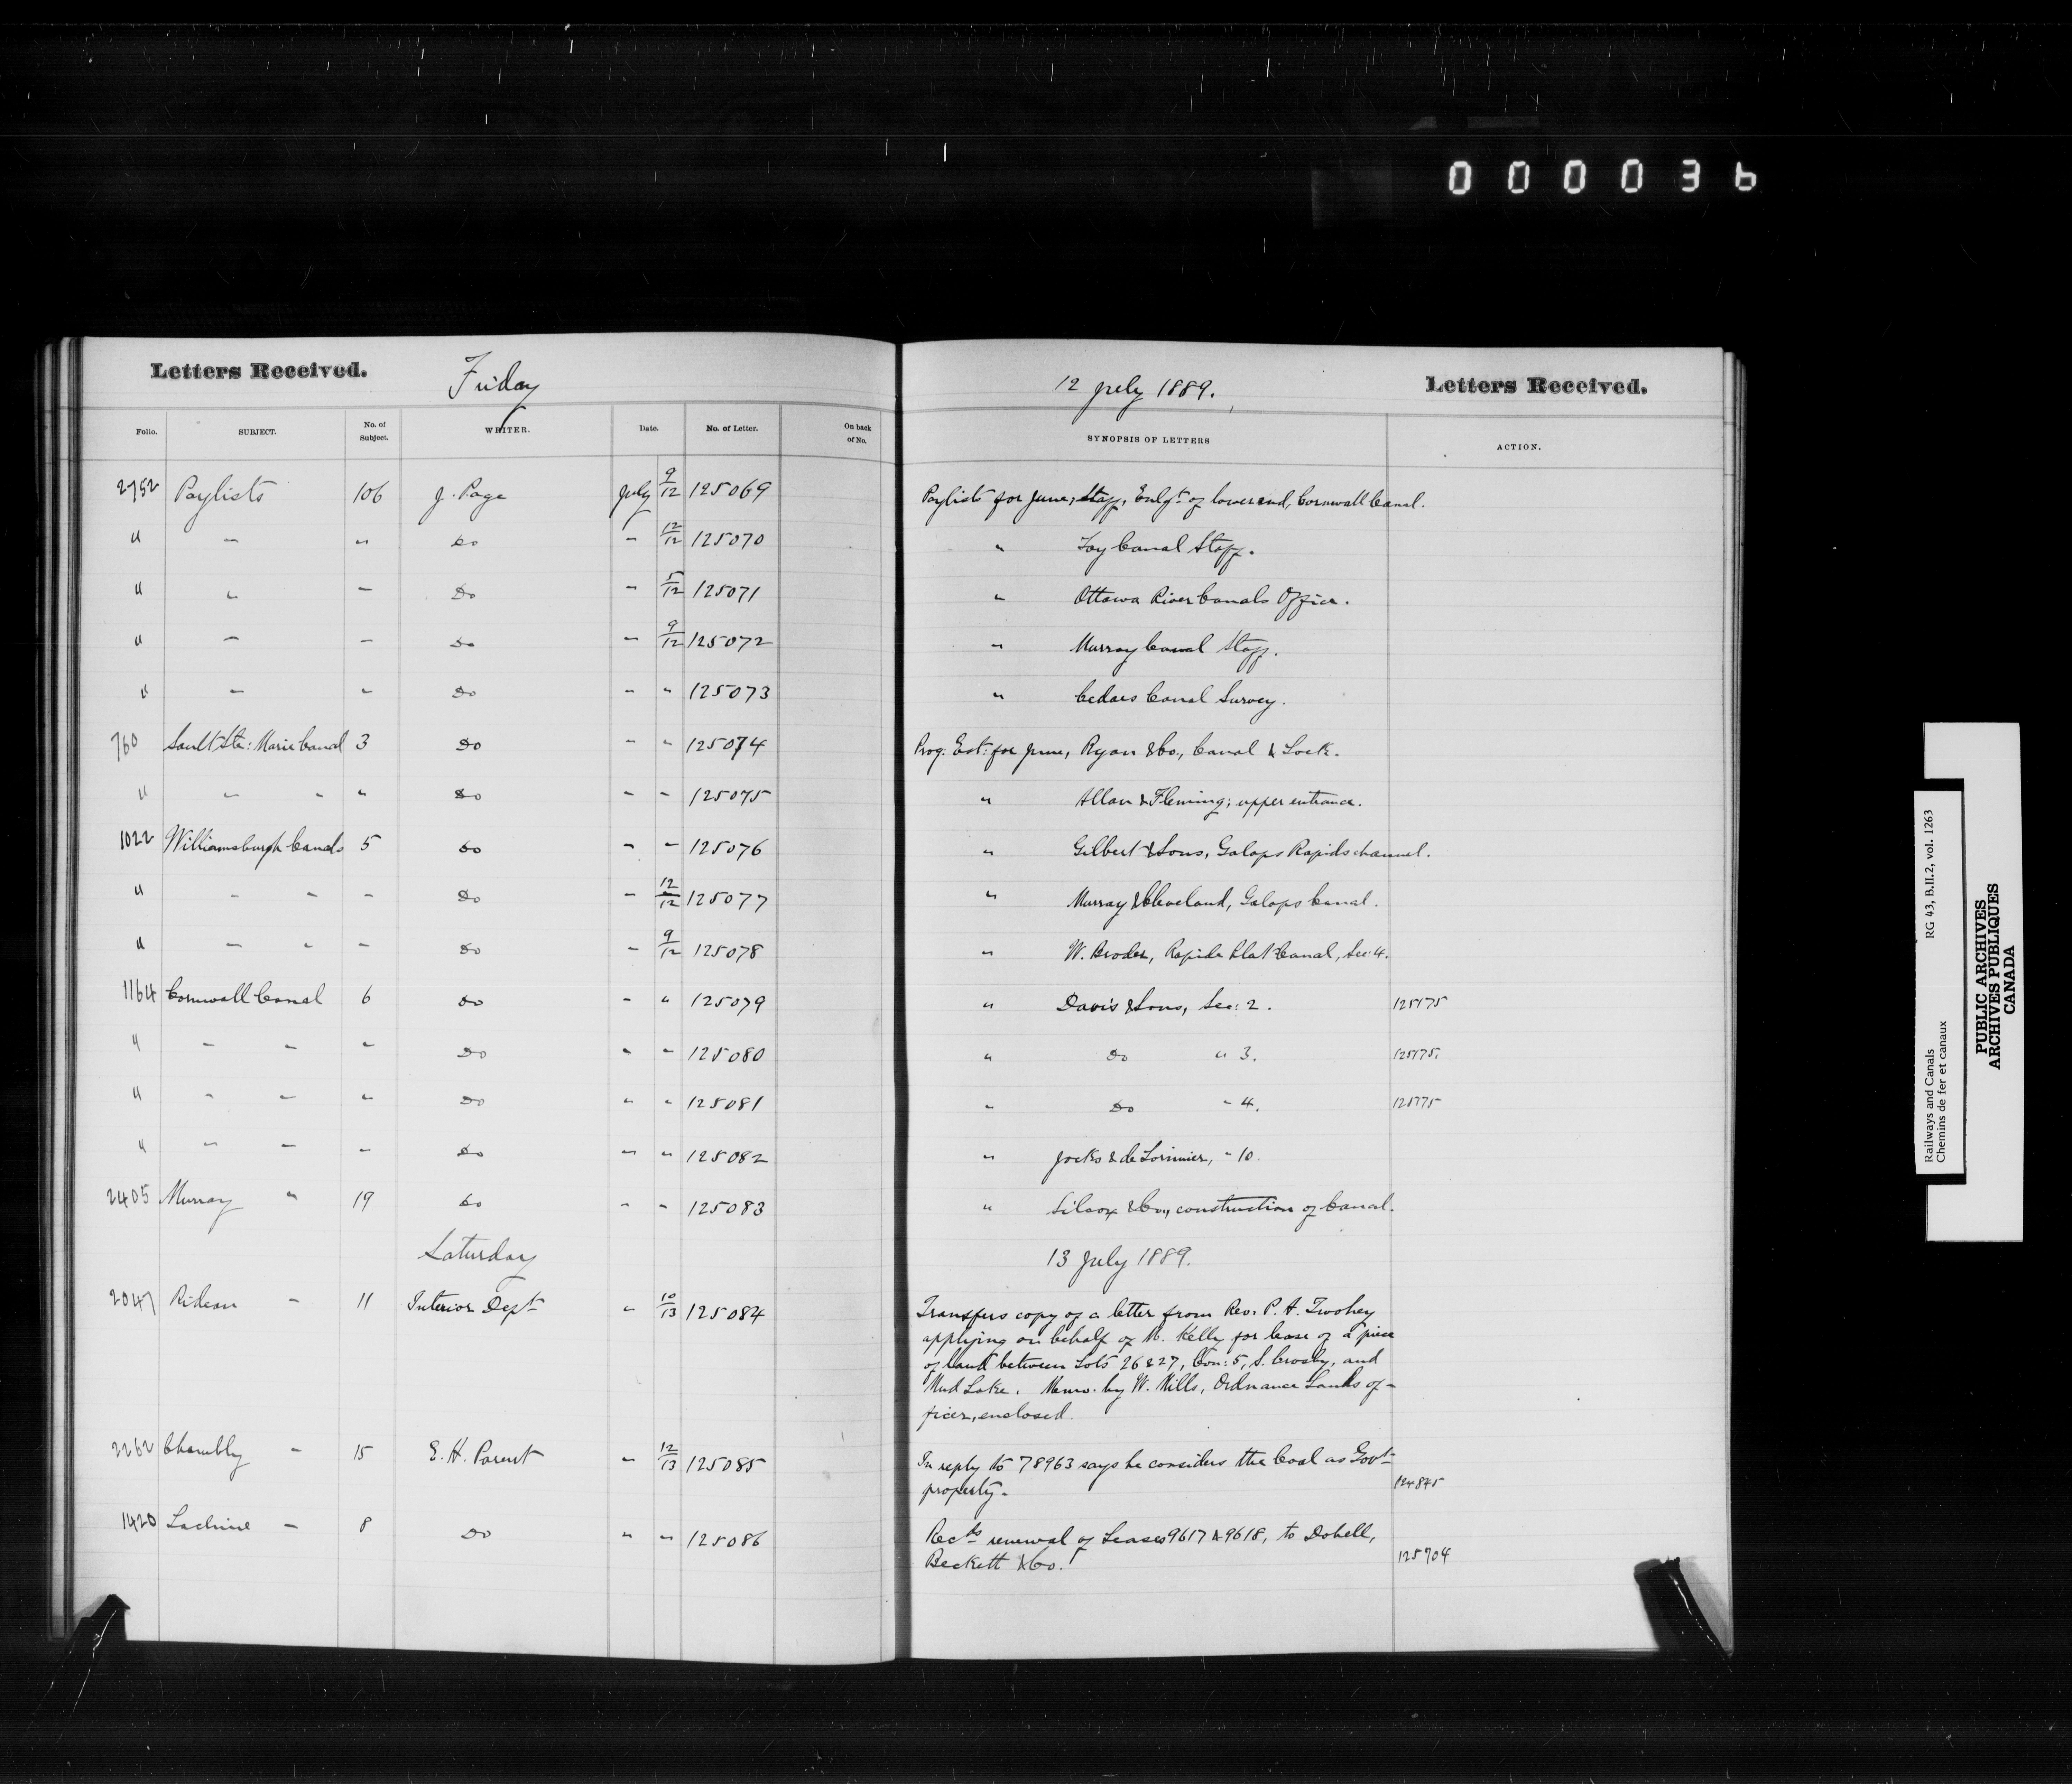 0 0 0 0 3 6
Letters Received. Friday 12 July 1889. Letters Received.
Folio. SUBJECT. No. of Subject. WRITER. Date. No. of Letter. On back of No. SYNOPSIS OF LETTERS ACTION.
2752 Paylists 106 J. Page July 9/12 125069 Paylists for June; Staff, Enlgt. of lower end, Cornwall Canal.
" " " Do " 12/12 125070 " Tay Canal Staff.
" " " Do " 5/12 125071 " Ottawa River Canals Office.
" " " Do " 9/12 125072 " Murray Canal Staff.
" " " Do " " 125073 " Cedars Canal Survey.
760 Sault Ste: Marie Canal 3 Do " " 125074 Prog. Est: for June, Ryan & Co., Canal & Lock.
" " " " Do " " 125075 " Allan & Fleming; upper entrance.
1022 Williamsburgh Canals 5 Do " " 125076 " Gilbert & Sons, Galops Rapids channel.
" " " " Do " 12/12 125077 " Murray & Cleveland, Galops Canal.
" " " " Do " 9/12 125078 " W. Broder, Rapide Plat Canal, Sec: 4.
1164 Cornwall Canal 6 Do " " 125079 " Davis & Sons, Sec: 2. 125175
" " " " Do " " 125080 " Do " 3. 125175.
" " " " Do " " 125081 " Do " 4. 125175
" " " " Do " " 125082 " Jocks & de Lorimier, " 10.
2405 Murray " 19 Do " " 125083 " Silcox & Co., construction of Canal.
Saturday 13 July 1889.
2047 Rideau " 11 Interior Dept " 10/13 125084 Transfers copy of a letter from Rev. P. A. Twohey
applying on behalf of M. Kelly for lease of a piece
of land between Lots 26 & 27, Con: 5, S. Crosby, and
Mud Lake. Memo. by W. Mills, Ordnance Lands of-
ficer, enclosed.
2262 Chambly " 15 E. H. Parent " 12/13 125085 In reply to 78963 says he considers the Coal as Govt
property. 124845
1420 Lachine " 8 Do " " 125086 Recds renewal of Leases 9617 & 9618, to Dobell,
Beckett & Co. 125704
Railways and Canals RG 43, B.II.2, vol. 1263
Chemins de fer et canaux
PUBLIC ARCHIVES
ARCHIVES PUBLIQUES
CANADA